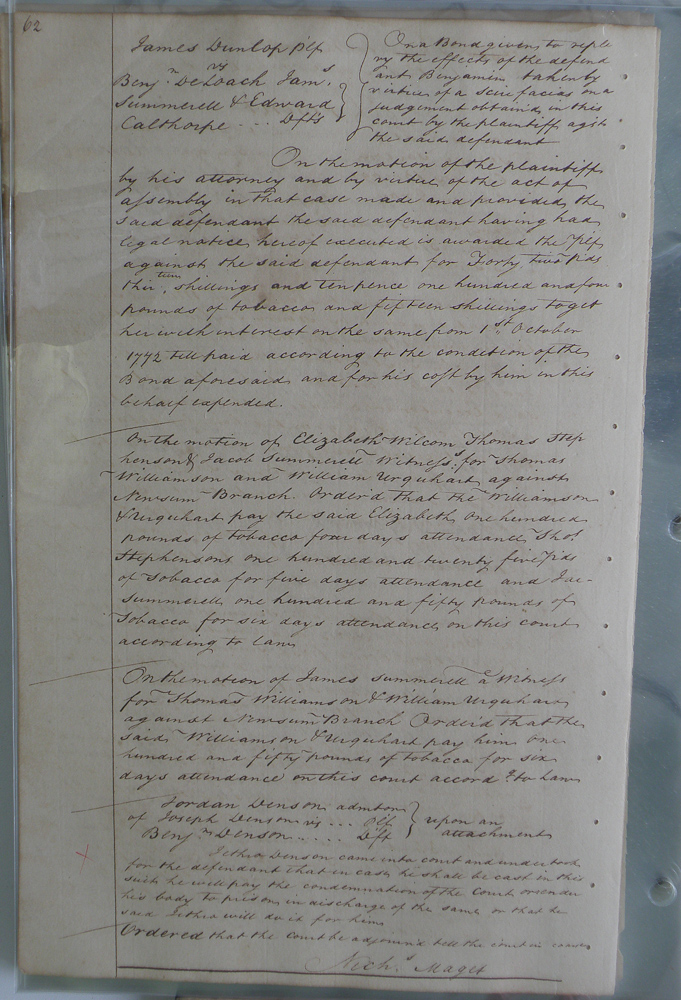 62
James Dunlop Plf
vs
Benj.n DeLoach Jam.s
Summerell & Edward
Calthorpe ... Dfts
On a Bond given to reple
vy the effects of the defend
ant Benjamin taken by
virtue of a scire facias on a
judgement obtain'd in this
court by the plaintiff agst
the said defendant
On the motion of the plaintiff
by his attorney and by virtue of the act of
assembly in that case made and provided, the
said defendant the said defendant having had
legal notice, hereof executed is awarded the Plf
against the said defendant for Forty two Pds
thirteen shillings and ten pence one hundred and four
pounds of tobacco and fifteen shillings toget
her with interest on the same from 1st October
1772 till paid according to the condition of the
Bond aforesaid and for his cost by him in this
behalf expended.
On the motion of Elizabeth Wilcom Thomas Step
henson & Jacob Summerell Witness.s for Thomas
Williamson and William Urquhart against
Newsum Branch. Order'd that the Williamson
& Urquhart pay the said Elizabeth one hundred
pounds of tobacco four days attendance, Thos
Stephensons one hundred and twenty five Pds
of Tobacco for five days attendance and Jac-
Summerell one hundred and fifty pounds of
Tobacco for six days attendance on this court
according to law
On the motion of James Summerell a Witness
for Thomas Williamson & William Urquhart
against Newsum Branch Order'd that the
said Williamson & Urquhart pay him one
hundred and fifty pounds of tobacco for six
days attendance on this court accord.g to Law
Jordan Denson admton
of Joseph Denson vs ... Plf
Benj.n Denson ..... Dft
upon an
attachment
Jethro Denson came into court and undertook
for the defendant that in case he shall be cast in this
suit he will pay the condemnation of the Court or render
his body to prison in discharge of the same or that he
said Jethro will do it for him
Ordered that the Court be adjourn'd till the court in course
Nich.s Maget